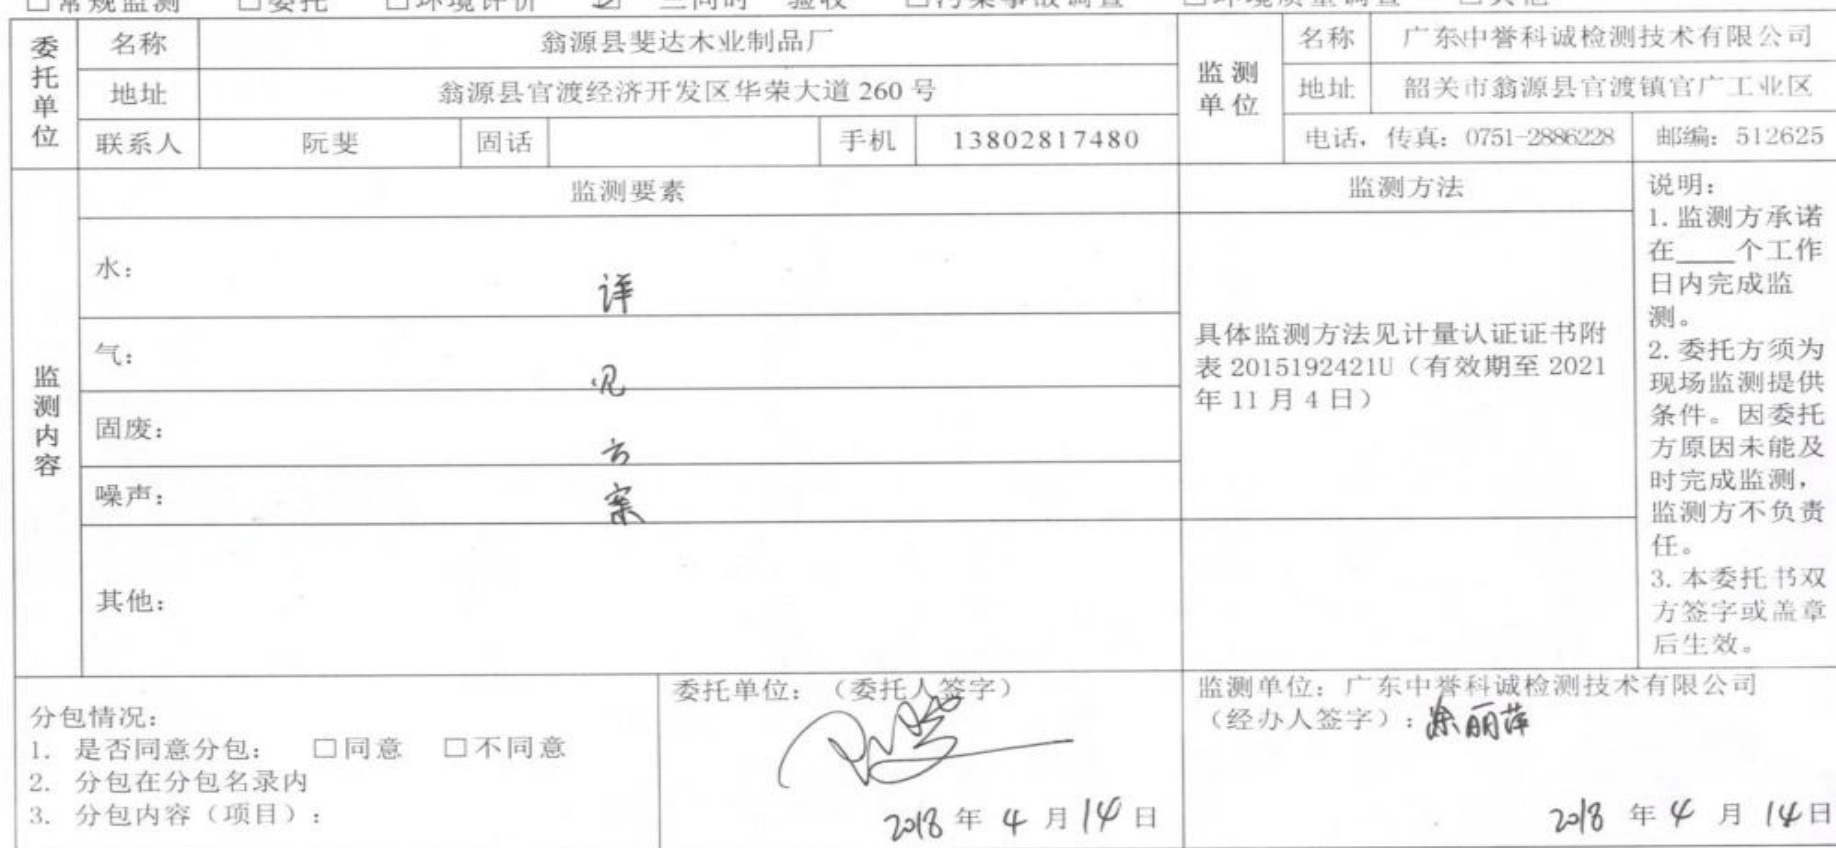 □常规监测 □委托 □环境评价 ☑“三同时”验收 □污染事故调查 □环境质量调查 □其他
委托单位
名称 翁源县斐达木业制品厂
地址 翁源县官渡经济开发区华荣大道 260 号
联系人 阮斐 固话 手机 13802817480
监测单位
名称 广东中誉科诚检测技术有限公司
地址 韶关市翁源县官渡镇官广工业区
电话，传真：0751-2886228 邮编：512625
监测内容
监测要素
水：
气：
固废：
噪声：
其他：
详
见
方
案
监测方法
具体监测方法见计量认证证书附
表 2015192421U（有效期至 2021
年 11 月 4 日）
说明：
1. 监测方承诺
在____个工作
日内完成监
测。
2. 委托方须为
现场监测提供
条件。因委托
方原因未能及
时完成监测，
监测方不负责
任。
3. 本委托书双
方签字或盖章
后生效。
分包情况：
1. 是否同意分包： □同意 □不同意
2. 分包在分包名录内
3. 分包内容（项目）：
委托单位：（委托人签字）
2018 年 4 月 14 日
监测单位：广东中誉科诚检测技术有限公司
（经办人签字）：涂丽萍
2018 年 4 月 14 日